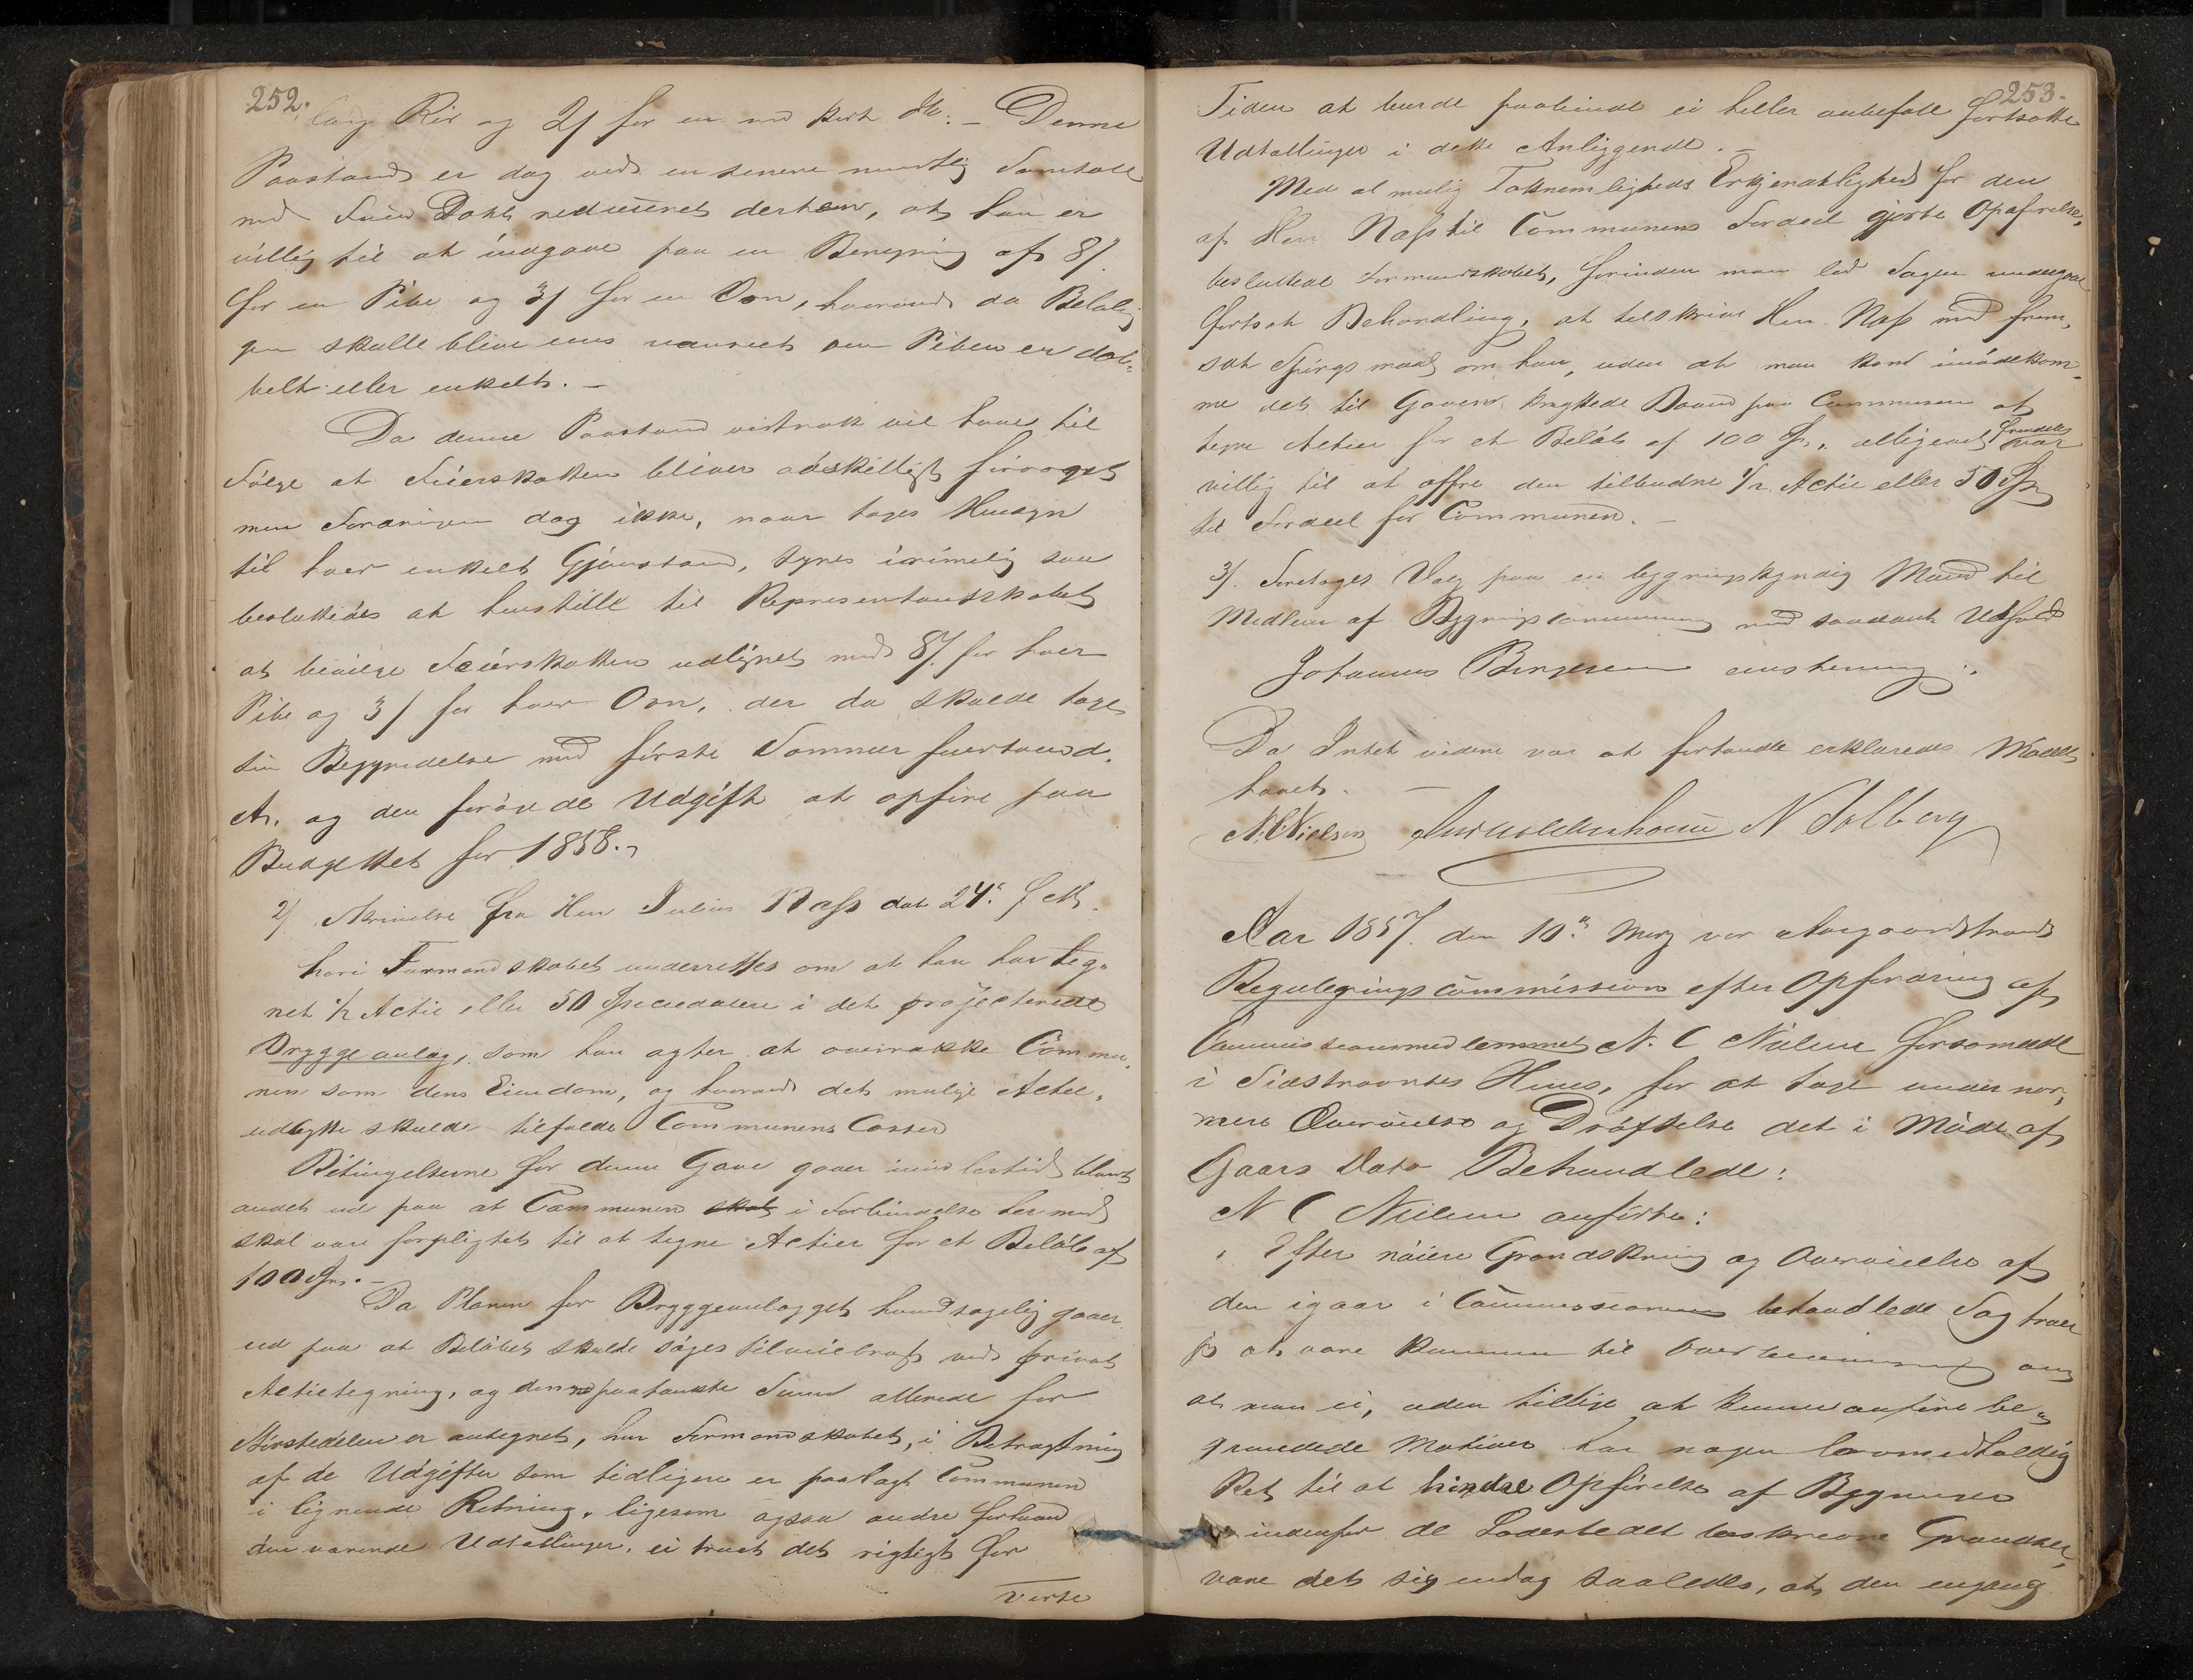 252.
lang Rør og 2/ for en med kort dto: - Denne
Paastand er dog ved en senere mundtlig Samtale
med Feier Dahl reduceret derhen, at han er
villig til at indgaae paa en Beregning af 8/.
for en Pibe og 3/ for en Ovn, hvorved da Betalin
gen skulle blive ens uanseet om Piben er dob-
belt eller enkelt. -
Da denne Paastand vistnok vil have til
Følge at Feierskatten bliver adskilligt forøget
men Fordringen dog ikke, naar tages Hensyn
til hver enkelt Gjenstand, synes urimelig saa
besluttedes at henstille til Repræsentantskabet
at bevilge Feierskatten udlignet med 8/. for hver
Pibe og 3/ for hver Ovn, der da skulde tage
sin Begyndelse med første Sommer
A. og den forøgede Udgift at opføre paa
Budgettet for 1858.
2/. Skrivelse fra Herr Julius Næss dat 24. f M.
hvori Formandskabet underrettes om at han har teg-
net 1/2 Actie eller 50 Speciedaler i det projecterede
Bryggeanlæg, som han agter at overrække Commu-
nen som dens Eiendom, og hvorved det mulige Actie-
udbytte skulde tilfalde Communens Casse
Betingelserne for denne Gave gaaer imidlertid blandt
andet ud paa at Communen skal i Forbindelse hermed
skal være forpligtet til at tegne Actier for et Beløb af
100 Spd. -
Da Planen for Bryggeanlægget hovedsagelig gaaer
ud paa at Beløbet skulde søges tilveiebragt ved privat
Actietegning, og den paatænkte Summa allerede for
Størstedelen er antegnet, har Formandskabet, i Betragtning
af de Udgifter som tidligere er paalagt Communen
i lignende Retning, ligesom ogsaa andre forhaand
denværende Udtællinger, ei troet det rigtigt for
Verte
253.
Tiden at burde paabinde ei heller anbefale fortsatte
Udtællinger i dette Anliggende. -
Med al mulig Taknemligheds Erkjendtlighed for den
af Herr Næss til Communens Fordeel gjorte Opofrelse,
besluttede Formandskabet, forinden man lod Sagen undergaae
fortsat Behandling, at tilskrive Herr Næss med frem-
sat Spørgsmaal om han, uden at man kand imødekom-
me det til Gaven knyttede Baand paa Communen at
tegne Actier for et Beløb af 100 Sp., alligevel fremdeles var
villig til at offre den tilbudne 1/2 Actie eller 50 Spd
til Fordeel for Communen. -
3/. Foretoges Valg paa en bygningskyndig Mand til
Medlem af Bygningscommission med saadant Udfald
Johannes Børgesen enstemmig.
Da Intet videre var at forhandle erklæredes Mødet
hævet. -
N.C. Nielsen N Solberg
Aar 1857. den 10de Marz var Aasgaardstrands
Reguleringscommission efter Opfordring af
Commissionsmedlemmet N. C Nielsen forsamlede
i Huus, for at tage under nær-
mere Overveielse og Drøftelse det i Møde af
Gaars Dato Behandlede:
N C Nielsen anførte:
"Efter nøiere Grandskning og Overveielse af
den igaar i Commissionen behandlede Sag troer
jeg at være kommen til Overbeviisning om
at man ei, uden tillige at kunne anføre be-
grundede Motiver har nogen lovmedholdig
Ret til at hindre Opførelse af Bygninger
indenfor de Ladestedet beskrevne Grændser,
være det sig endog saaledes, at den engang